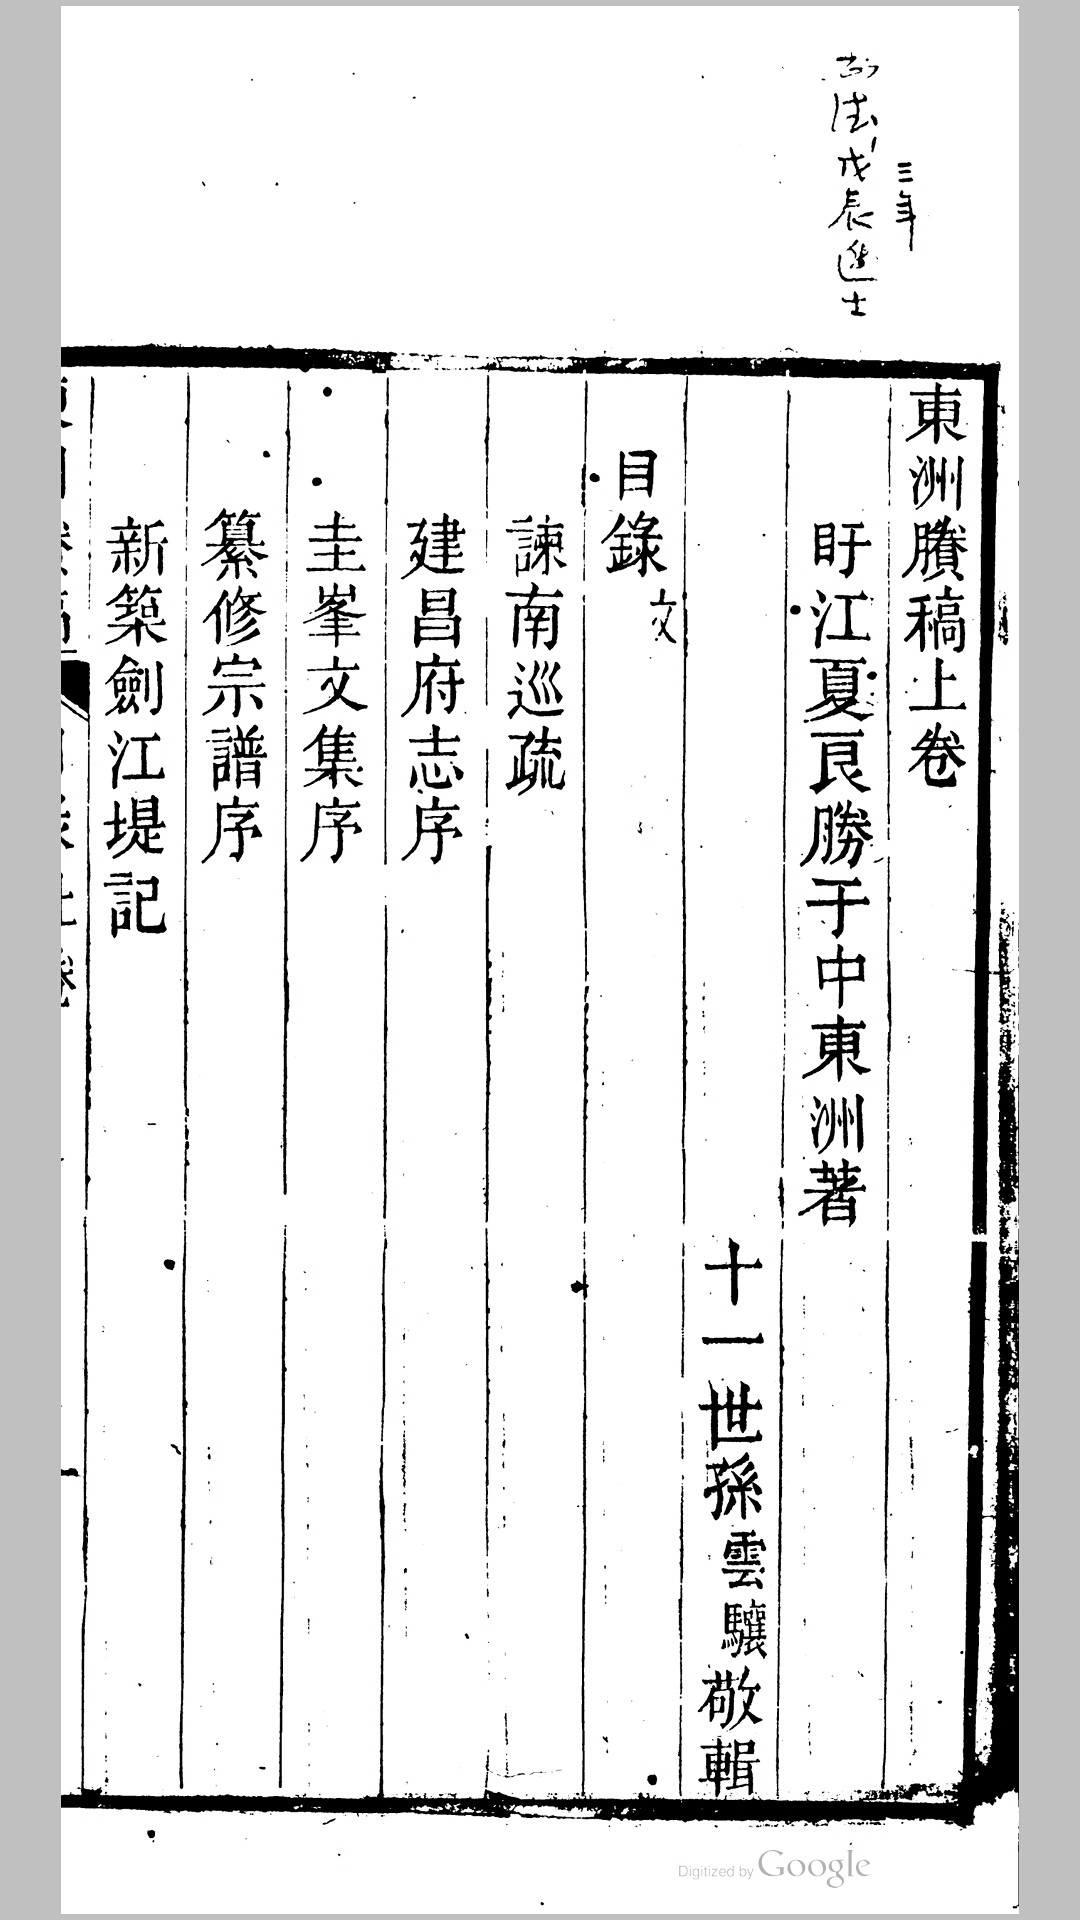 正德戊辰進士
三年
東洲賸稿上卷
盱江夏良勝于中東洲著
十一世孫雲驤敬輯
目錄 文
諫南巡疏
建昌府志序
圭峯文集序
纂修宗譜序
新築劍江堤記
Digitized by Google